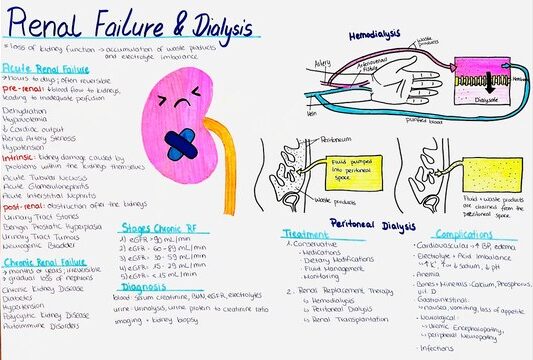 Renal Failure & Dialysis
* loss of kidney function → accumulation of waste products
and electrolyte imbalance
Acute Renal Failure
→ hours to days; often reversible
pre-renal: ↓ blood flow to kidneys,
leading to inadequate perfusion
Dehydration
Hypovolemia
↓ Cardiac output
Renal Artery Stenosis
Hypotension
Intrinsic: kidney damage caused by
problems within the kidneys themselves
Acute Tubular Necrosis
Acute Glomerulonephritis
Acute Interstitial Nephritis
post-renal: obstruction after the kidneys
Urinary Tract Stones
Benign Prostatic Hyperplasia
Urinary Tract Tumors
Neurogenic Bladder
Chronic Renal Failure
→ months or years; irreversible
→ gradual loss of nephrons
Chronic Kidney Disease
Diabetes
Hypertension
Polycystic Kidney Disease
Autoimmune Disorders
Stages Chronic RF
1) eGFR > 90 mL/min
2) eGFR = 60 - 89 mL/min
3) eGFR = 30 - 59 mL/min
4) eGFR = 15 - 29 mL/min
5) eGFR = < 15 mL/min
Diagnosis
blood: serum creatinine, BUN, eGFR, electrolytes
urine: urinalysis, urine protein to creatinine ratio
imaging + kidney biopsy
Hemodialysis
Waste products
Artery
Arteriovenous Fistula
Vein
Dialysate
purified blood
Peritoneum
Fluid pumped
into peritoneal
space
Waste products
Fluid + waste products
are drained from the
peritoneal space
Peritoneal Dialysis
Treatment
1. Conservative
- Medications
- Dietary Modifications
- Fluid Management
- Monitoring
2. Renal Replacement Therapy
↳ Hemodialysis
↳ Peritoneal Dialysis
↳ Renal Transplantation
Complications
- Cardiovascular → ↑ BP, edema
- Electrolyte + Acid Imbalance
- Anemia
- Bones + Minerals: Calcium, Phosphorus,
vit D
- Gastrointestinal:
↳ nausea, vomiting, loss of appetite
- Neurological:
↳ Uremic Encephalopathy,
↳ peripheral Neuropathy
- Infections